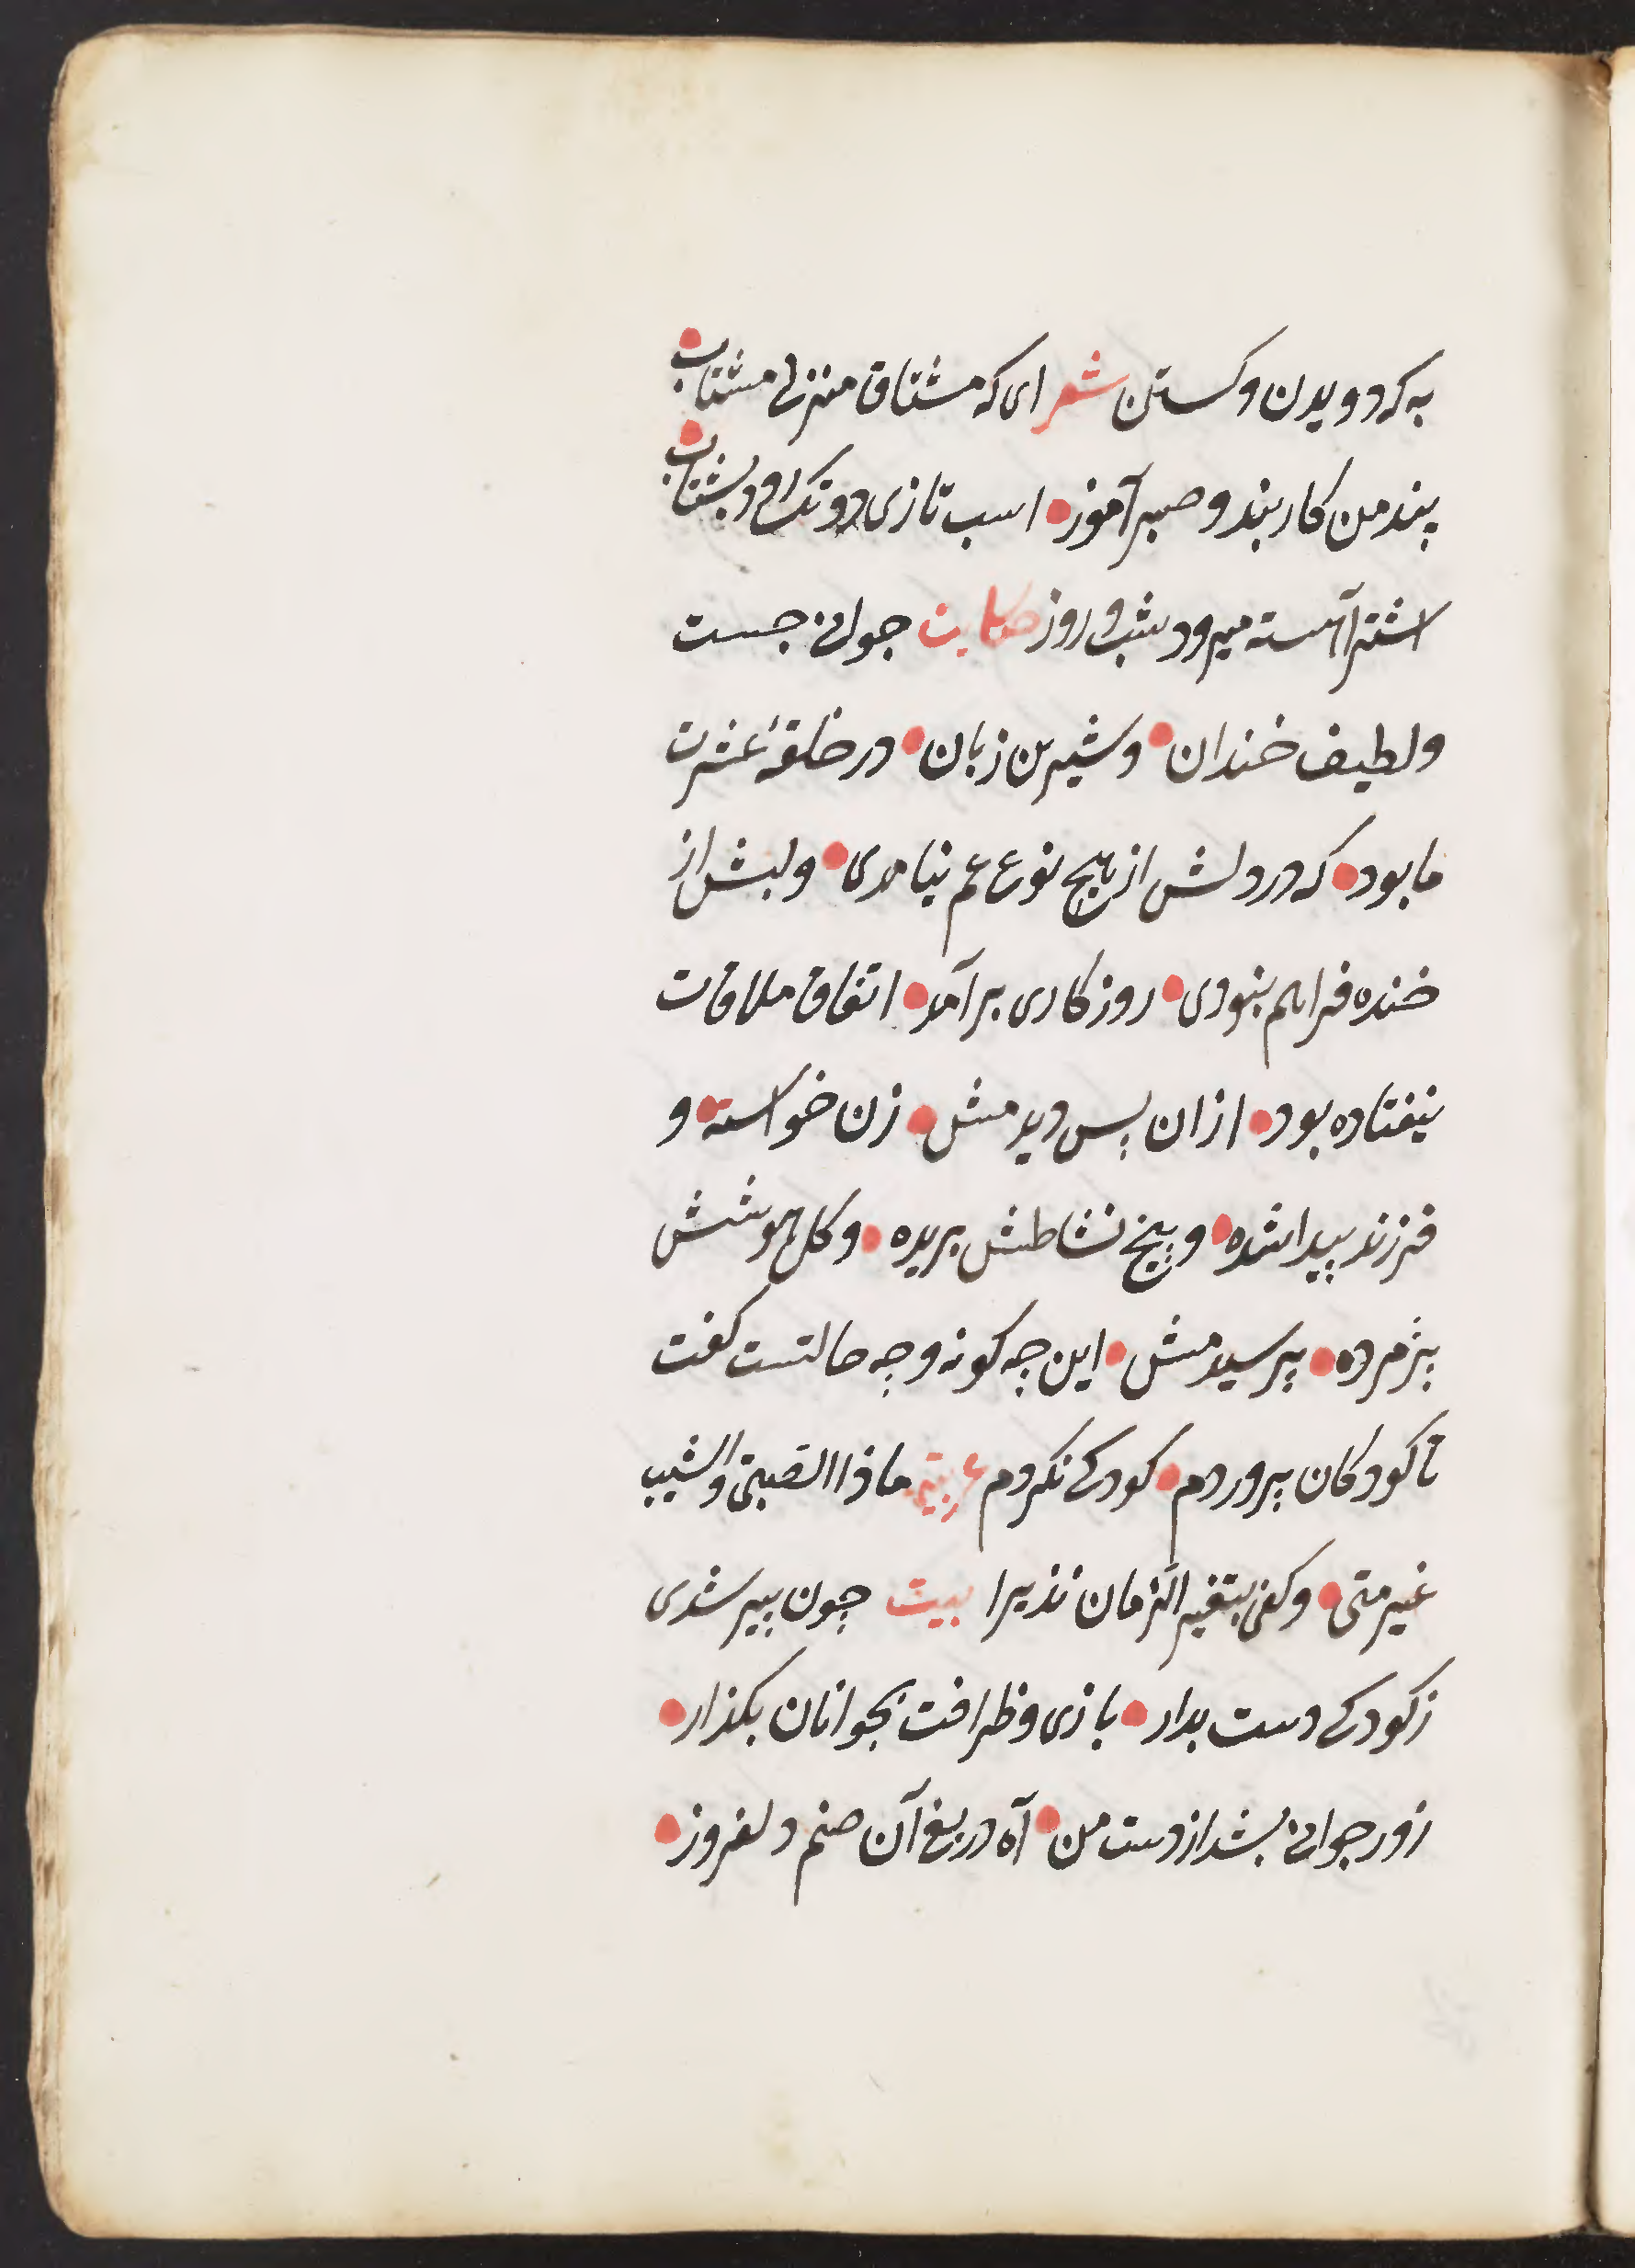 به که دویدن وکسستن شعر ای که مشتاق منزلی مشتاب
پند من کار بند و صبر آموز اسب تازی دو تک رود بشتاب
اشتر آهسته میرود شب و روز حکایت جوانی جست
ولطیف خندان وشیرین زبان در حلقهٔ عشرت
ما بود که در دلش از هیچ نوع غم نیامدی ولبش از
خنده فراهم نبودی روزکاری برآمد اتفاق ملاقات
نیفتاده بود ازان پس دیدمش زن خواسته و
فرزند پیدا شده وبیخ نشاطش بریده وکل هوسش
پژمرده پرسیدمش این چه کونه وچه حالتست کفت
تا کودکان پروردم کودکی نکردم عربیة ماذا الصبی والشیب
غیر متی وکفی بتغیر الزمان نذیرا بیت چون پیر شدی
زکودکی دست بدار بازی وظرافت بجوانان بکذار
زور جوانی بشد از دست من آه دریغ آن صنم دلفروز